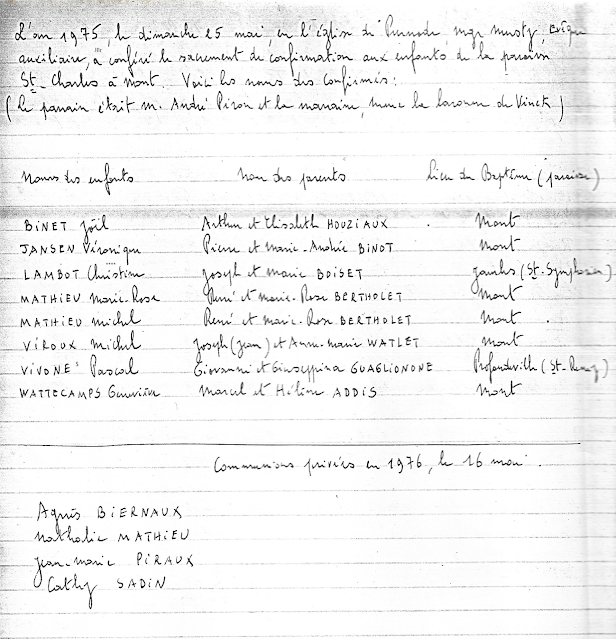 L'an 1975, le dimanche 25 mai, en l'église de Purnode, mgr Musty, Evêque
auxiliaire, a conféré le sacrement de confirmation aux enfants de la paroisse
St-Charles à Mont. Voici les noms des confirmés:
(Le parrain était M. André Piron et la marraine, Mme la baronne de Vinck)
Noms des enfants Nom des parents Lieu du Baptême (paroisse)
BINET Joël Arthur et Elisabeth HOUZIAUX Mont
JANSEN Véronique Pierre et Marie-Andrée BINOT Mont
LAMBOT Christine Joseph et Marie BOISET Jambes (St-Symphorien)
MATHIEU Marie-Rose René et Marie-Rose BERTHOLET Mont
MATHIEU Michel René et Marie-Rose BERTHOLET Mont
VIROUX Michel Joseph (Jean) et Anne-Marie WATLET Mont
VIVONE Pascal Giovanni et Giuseppina GUAGLIONONE Profondeville (St-Remy)
WATTECAMPS Geneviève Marcel et Hélène ADDIS Mont
Communions privées en 1976, le 16 mai.
Agnès BIERNAUX
Nathalie MATHIEU
Jean-Marie PIRAUX
Cathy SADIN